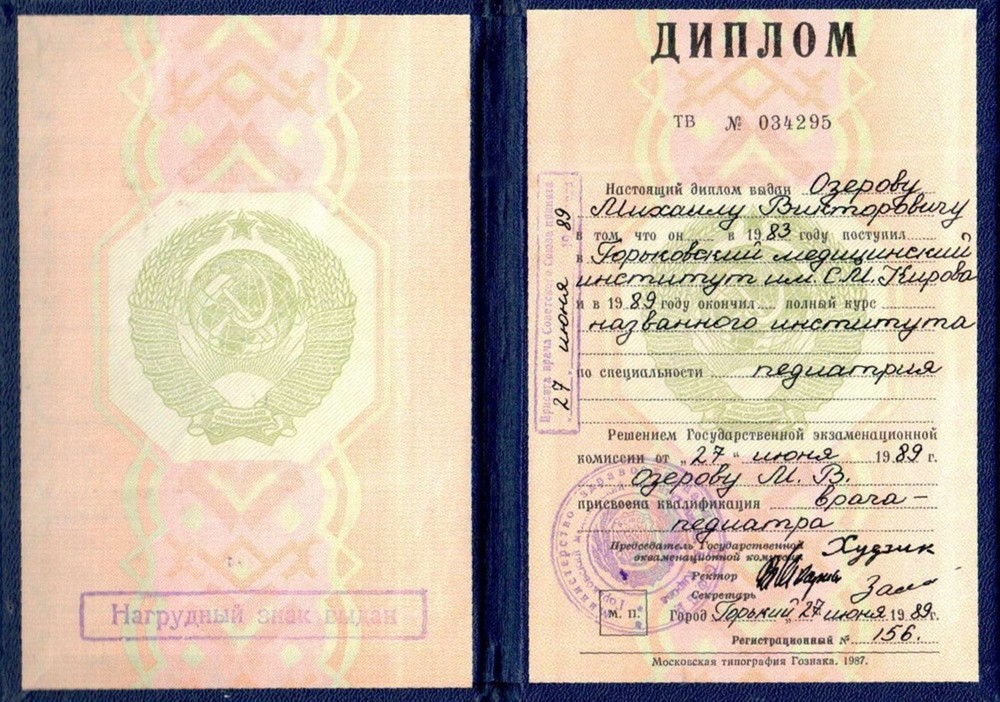 Нагрудный знак выдан
ДИПЛОМ
ТВ № 034295
Присяга врача Советского Союза принята
27 июня 1989
Настоящий диплом выдан Озерову
Михаилу Викторовичу
в том, что он в 1983 году поступил
в Горьковский медицинский
институт им. С.М. Кирова
и в 1989 году окончил полный курс
названного института
по специальности педиатрия
Решением Государственной экзаменационной
комиссии от „27“ июня 1989 г.
Озерову М. В.
присвоена квалификация врача-
педиатра
Председатель Государственной
экзаменационной комиссии Худзик
Ректор
Секретарь
М. П.
Город Горький 27 июня 1989г.
Регистрационный № 156.
Московская типография Гознака. 1987.